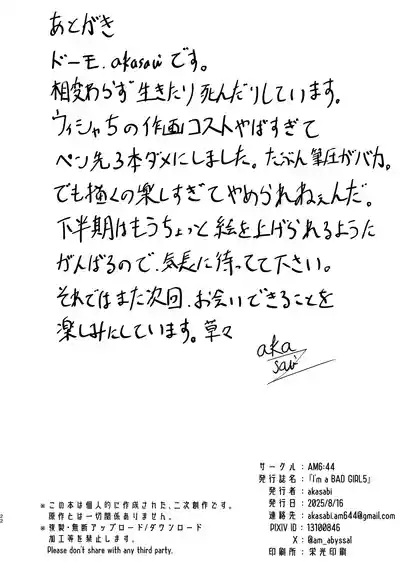 あとがき
ドーモ.akasaviです。
相変わらず生きたり死んだりしています。
ウィシャちの作画コストやばすぎて
ペン先3本ダメにしました。たぶん筆圧がバカ。
でも描くの楽しすぎてやめられねぇんだ。
下半期はもうちょっと絵を上げられるように
がんばるので、気長に待ってて下さい。
それではまた次回、お会いできることを
楽しみにしています。草々
aka
savi
サークル：AM6:44
発行誌名：「I'm a BAD GIRL5」
発行者：akasabi
発行日：2025/8/16
連絡先：akasabi.am644@gmail.com
PIXIV ID：13100846
X：@am_abyssal
印刷所：栄光印刷
※この本は個人的に作成された、二次創作です。
原作とは一切関係ありません。
※複製・無断アップロード/ダウンロード
加工等を禁止します。
Please don't share with any third party.